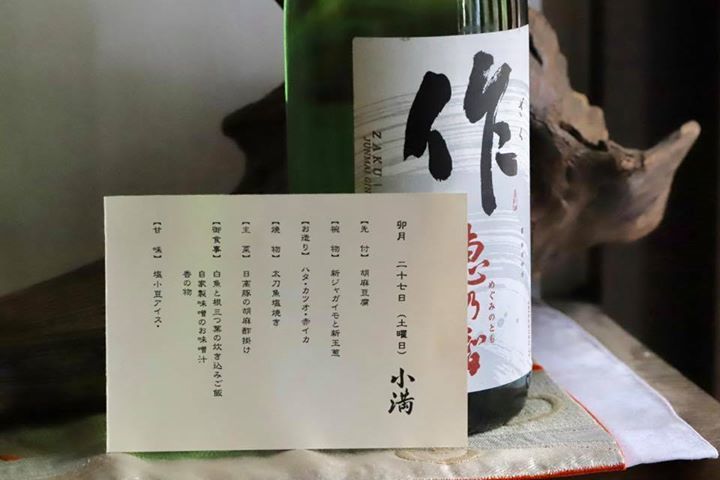 作
ざく
ZAKU
JUNMAI GIN
恵乃智
めぐみのとも
卯月　二十七日　（土曜日）　小満
【先付】　胡麻豆腐
【椀物】　新ジャガイモと新玉葱
【お造り】　ハタ・カツオ・赤イカ
【焼物】　太刀魚塩焼き
【主菜】　日高豚の胡麻酢掛け
【御食事】　白魚と根三つ葉の炊き込みご飯
自家製味噌のお味噌汁
香の物
【甘味】　塩小豆アイス・